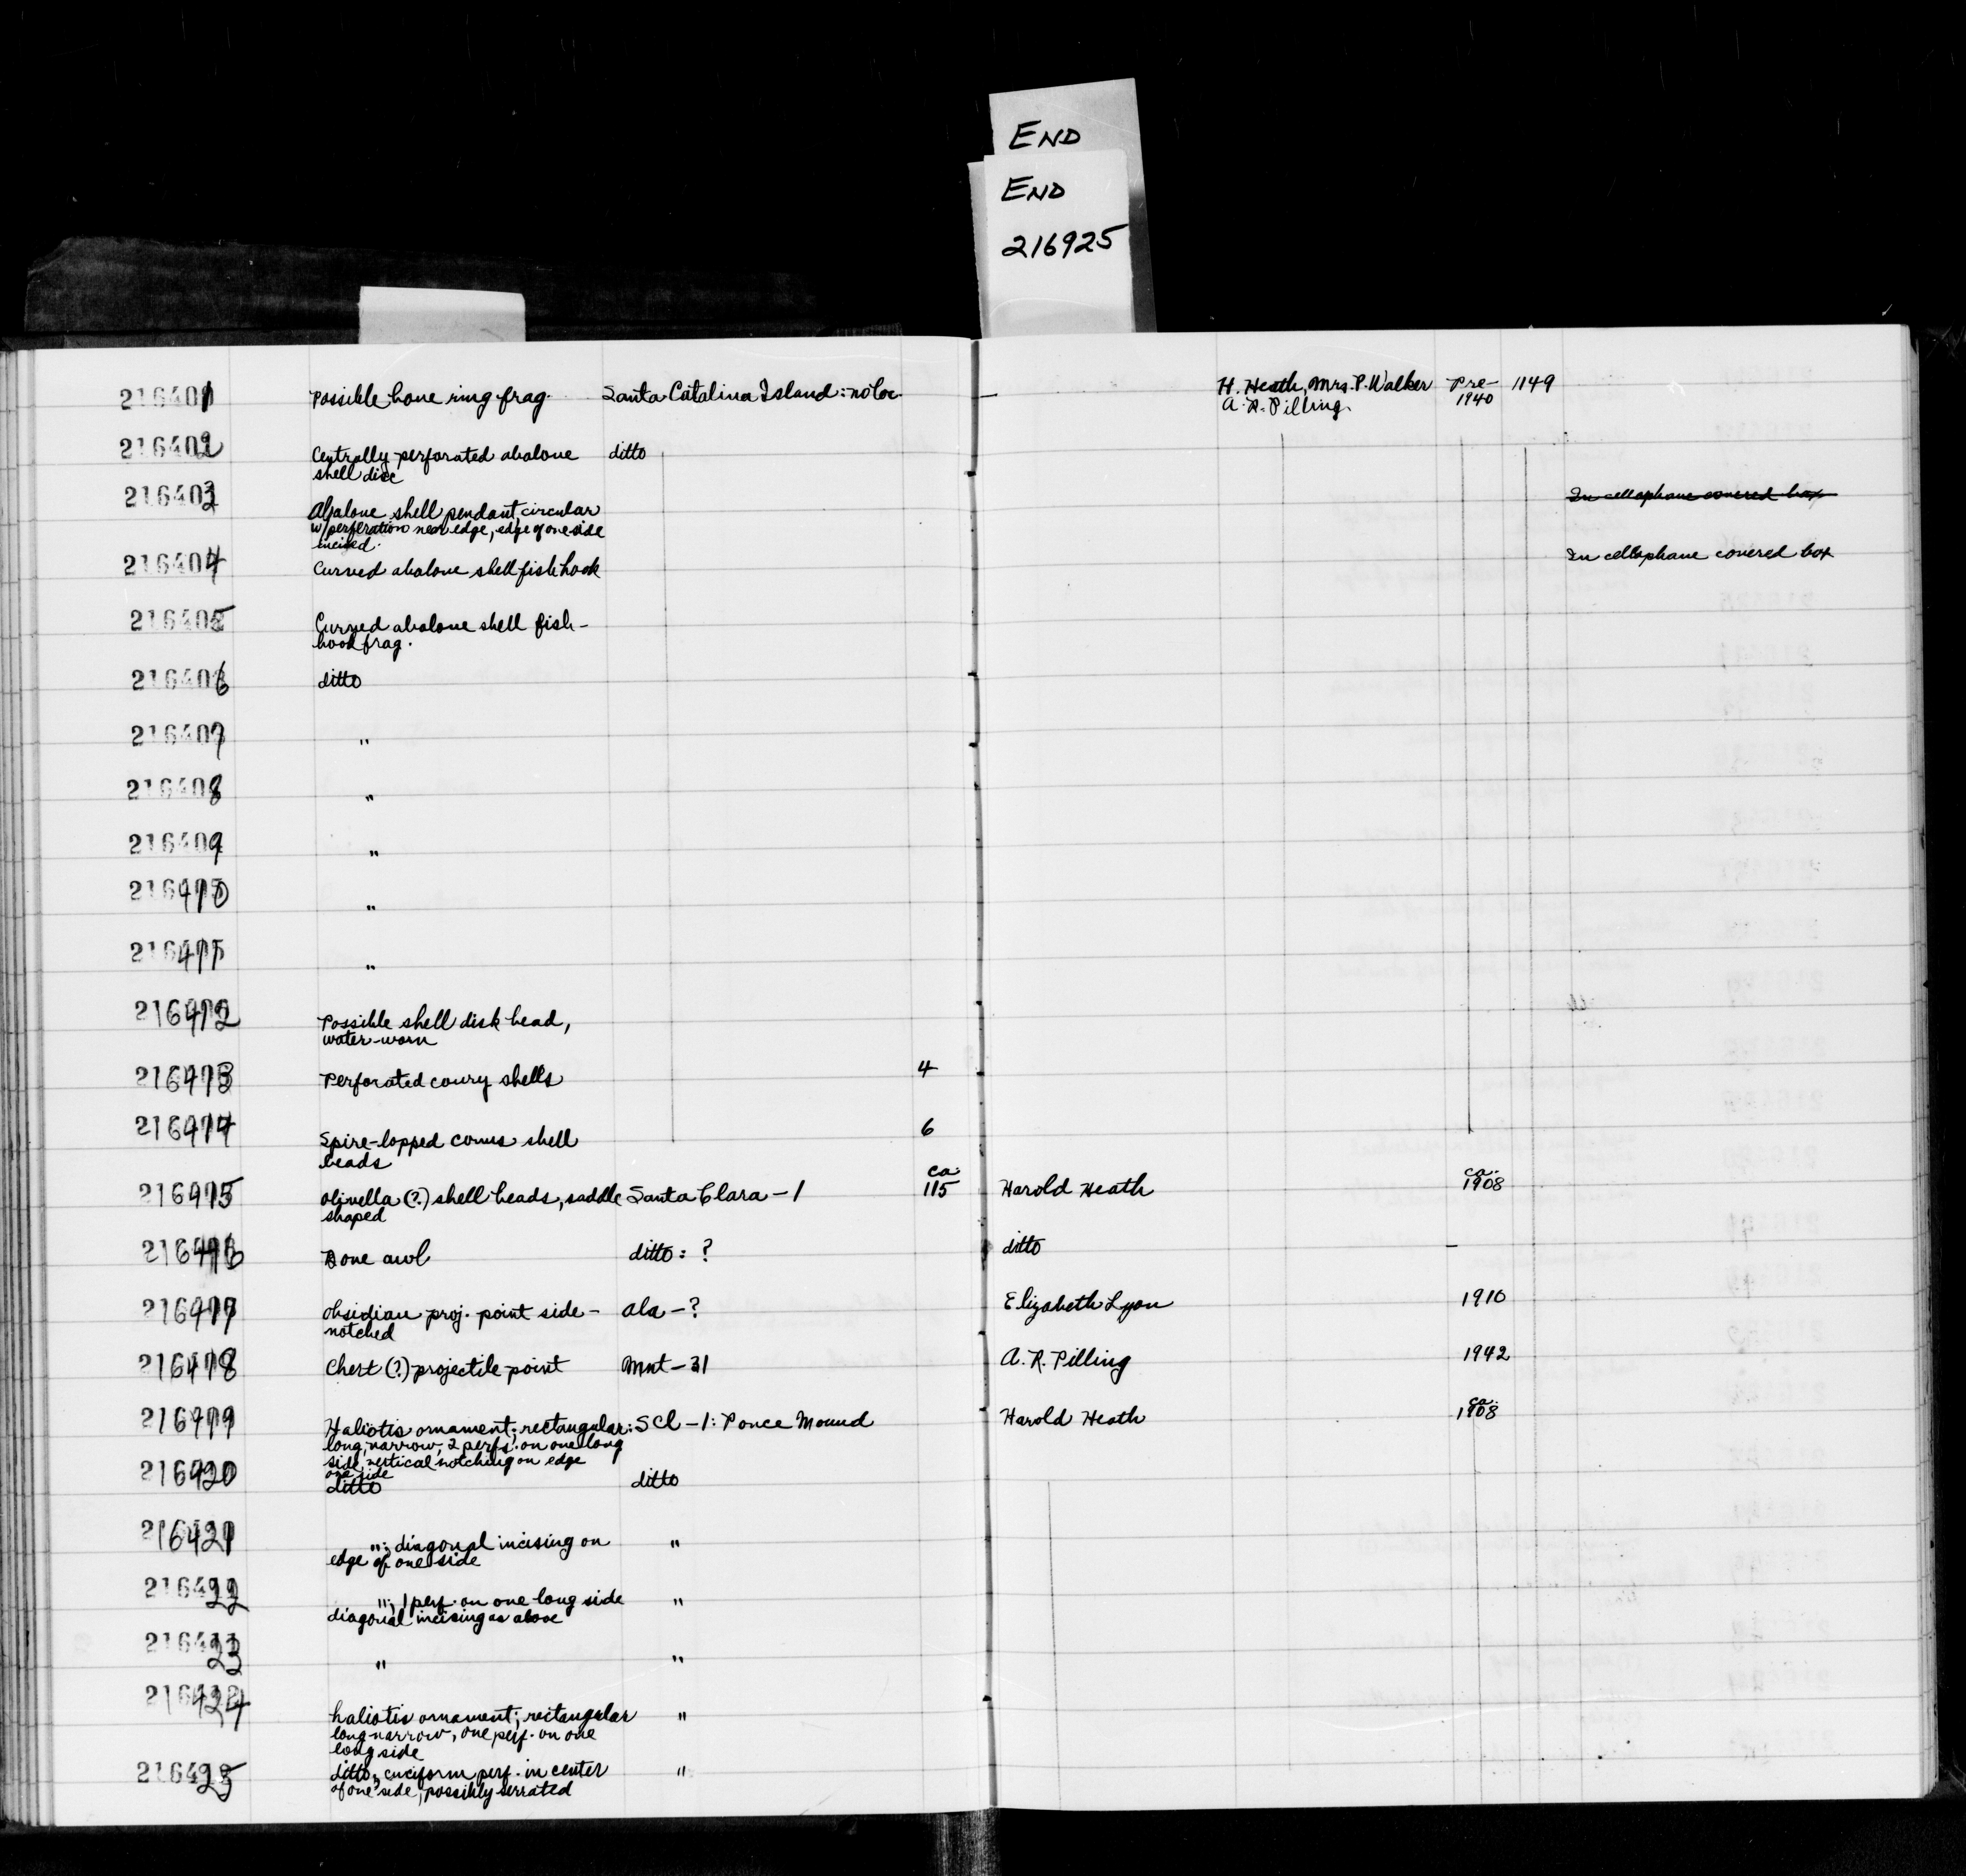 END
END
216925
216401 Possible bone ring frag. Santa Catalina Island: no loc — H. Heath, Mrs. P. Walker Pre- 1149
A. R. Pilling. 1940
216402 Centrally-perforated abalone ditto
shell disc
216403 Abalone shell pendant, circular In cellophane covered box
w/perforation near edge, edge of one side
incised.
216404 Curved abalone shell fish hook In cellophane covered box
216405 Curved abalone shell fish-
hook frag.
216406 ditto
216407 "
216408 "
216409 "
216410 "
216411 "
216412 Possible shell disk bead,
water-worn
216413 Perforated cowry shells 4
216414 Spire-lopped conus shell 6
beads
ca. ca.
216415 Olivella (?) shell beads, saddle Santa Clara - 1 115 Harold Heath 1908
shaped
216416 Bone awl ditto: ? ditto —
216417 Obsidian proj. point side- Ala - ? Elizabeth Lyon 1910
notched
216418 Chert (?) projectile point Mnt - 31 A. R. Pilling 1942
ca.
216419 Haliotis ornament; rectangular: SCl - 1: Ponce Mound Harold Heath 1908
long, narrow, 2 perfs. on one long
side, vertical notching on edge
one side
216420 ditto ditto
216421 "; diagonal incising on "
edge of one side
216422 "; 1 perf. on one long side "
diagonal incising as above
216423 " "
216424 haliotis ornament; rectangular "
long-narrow, one perf. on one
long side
216425 ditto; cruciform perf. in center "
of one side, possibly serrated